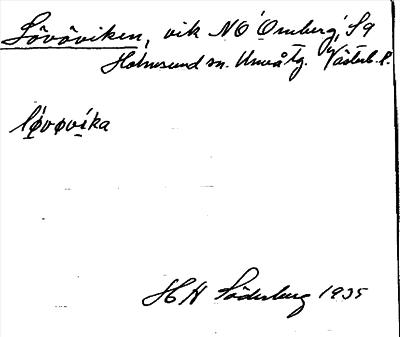 Lövöviken, vik NO Ornberg, S9
Holmsund sn. Umeå tg. Västerb. l.
lövövika
H H Söderberg 1935